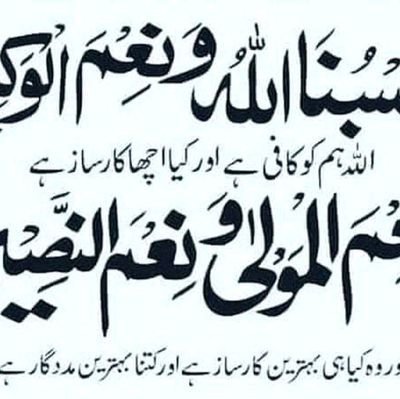 سْبُنَا اللّٰهُ وَنِعْمَ الْوَكِ
اللہ ہم کو کافی ہے اور کیا اچھا کارساز ہے
عْمَ الْمَوْلٰى وَنِعْمَ النَّصِيْ
ور وہ کیا ہی بہترین کارساز ہے اور کتنا بہترین مددگار ہے